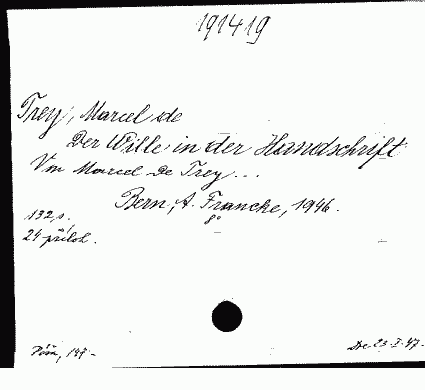 191419
Trey, Marcel de
Der Wille in der Handschrift
Von Marcel De Trey...
Bern, A. Francke, 1946.
8°
132 s.
24 příloh.
De 23.I.47.